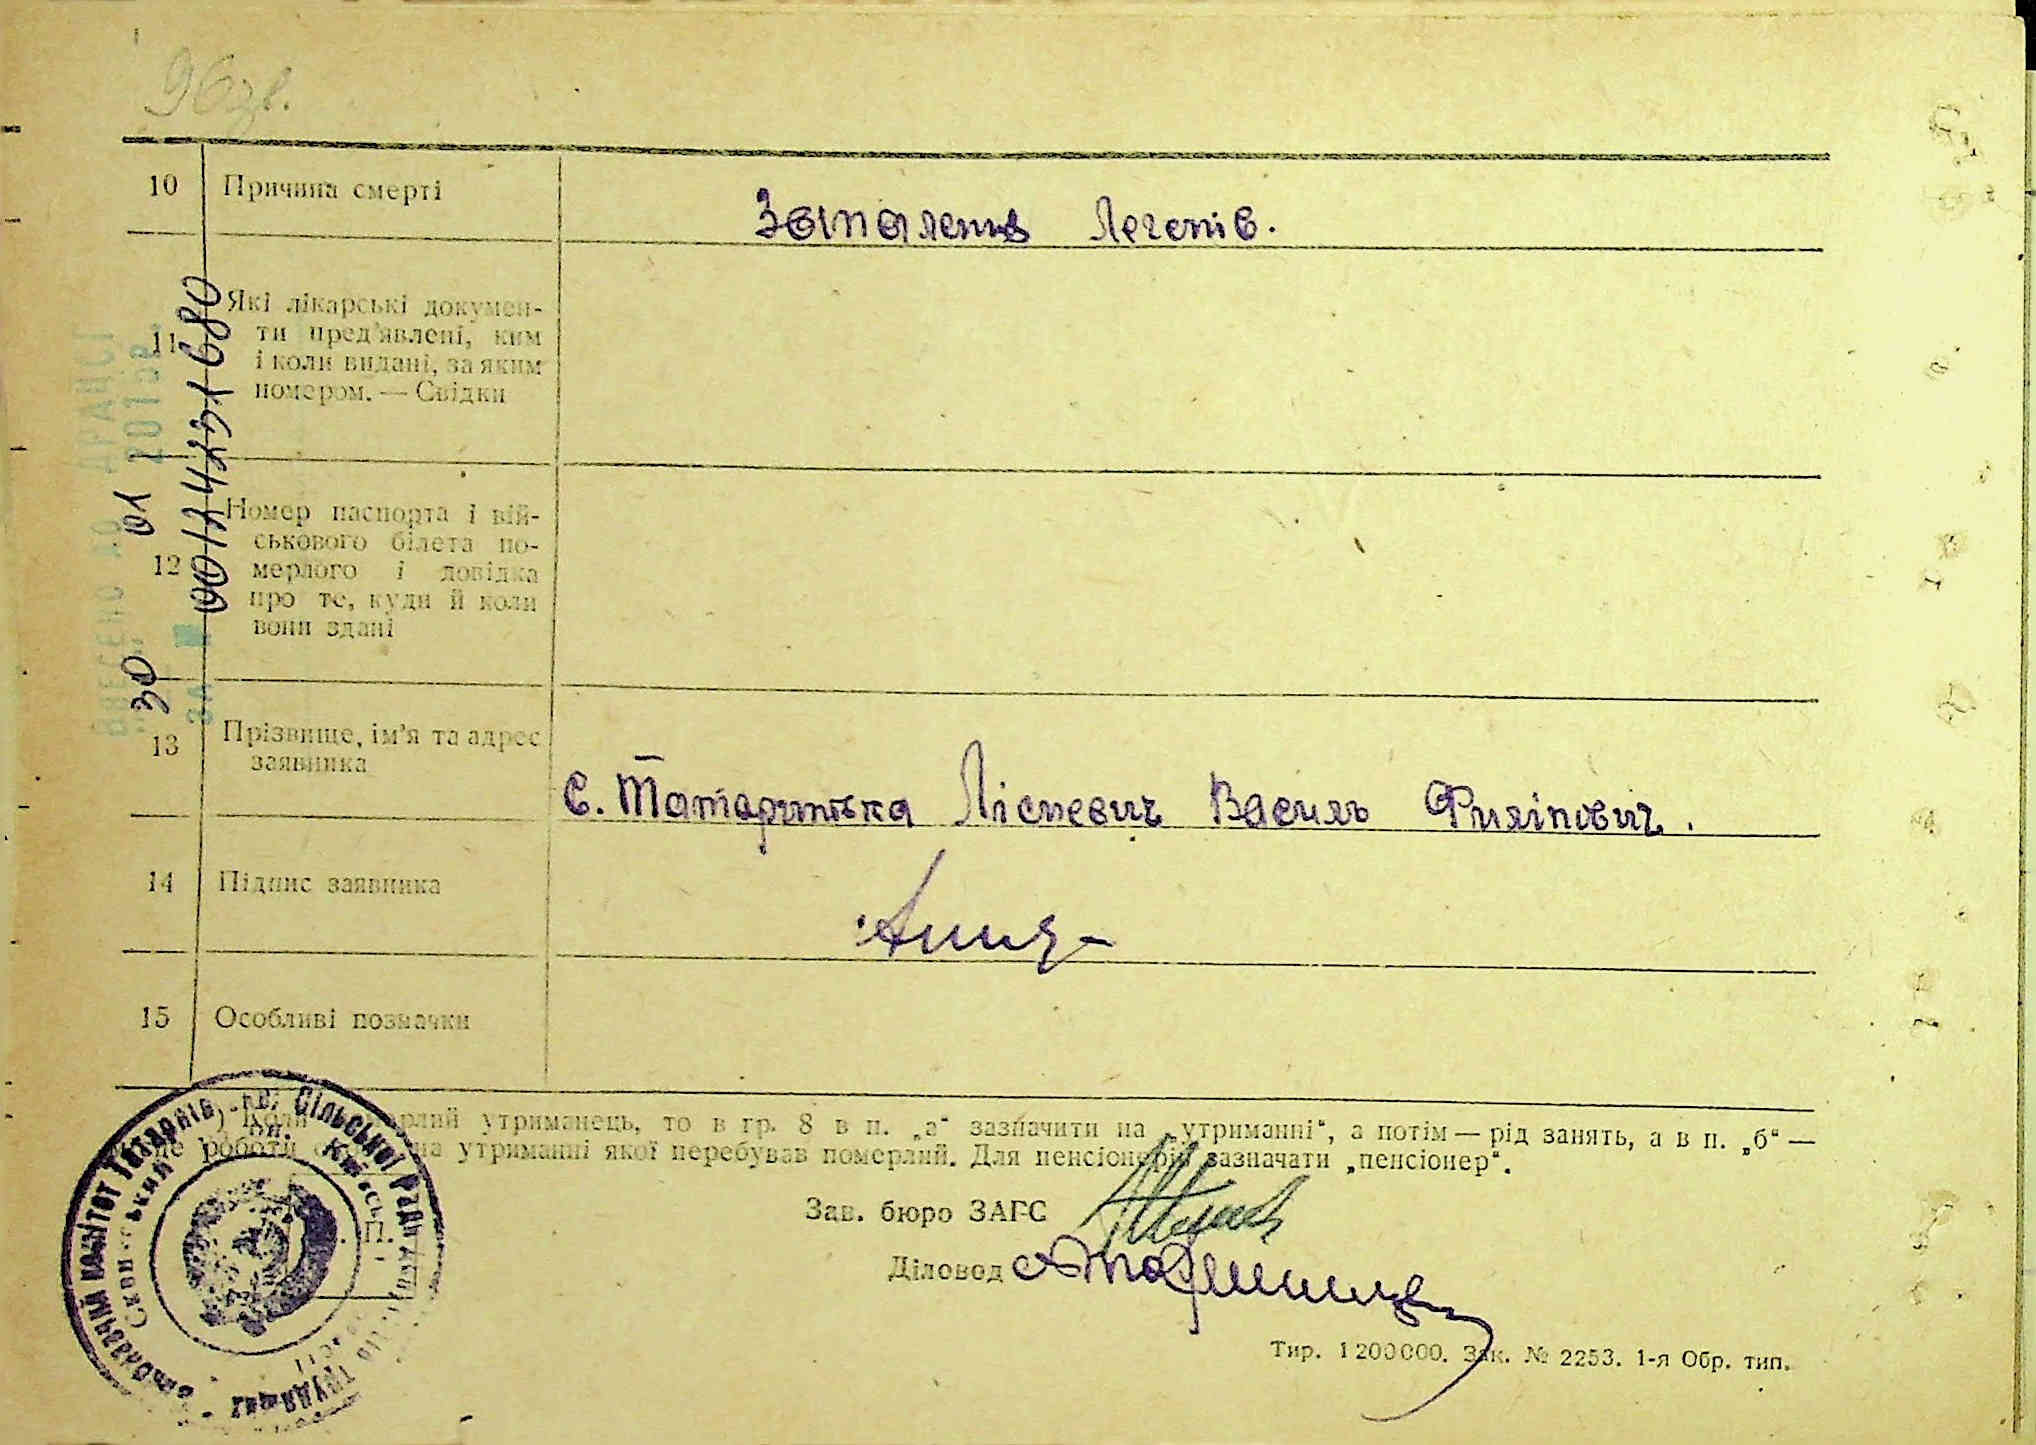 96 зв.
10 Причина смерті Запаления Легенів.
11 Які лікарські докумен-
ти пред'явлені, ким
і коли видані, за яким
номером. — Свідки
12 Номер паспорта і вій-
ськового білета по-
мерлого і довідка
про те, куди й коли
вони здані
30 01
00124231680
13 Прізвище, ім'я та адрес
заявника
С. Татаринівка Василь Филіпович.
14 Підпис заявника
15 Особливі позначки
утриманець, то в гр. 8 в п. „а“ зазначити на „утриманні“, а потім — рід занять, а в п. „б“ —
роботи на утриманні якої перебував померлий. Для пенсіонерів зазначати „пенсіонер“.
П.
Зав. бюро ЗАГС
Діловод
Тир. 1200000. Зак. № 2253. 1-я Обр. тип.
комітет Сільської Ради трудящих